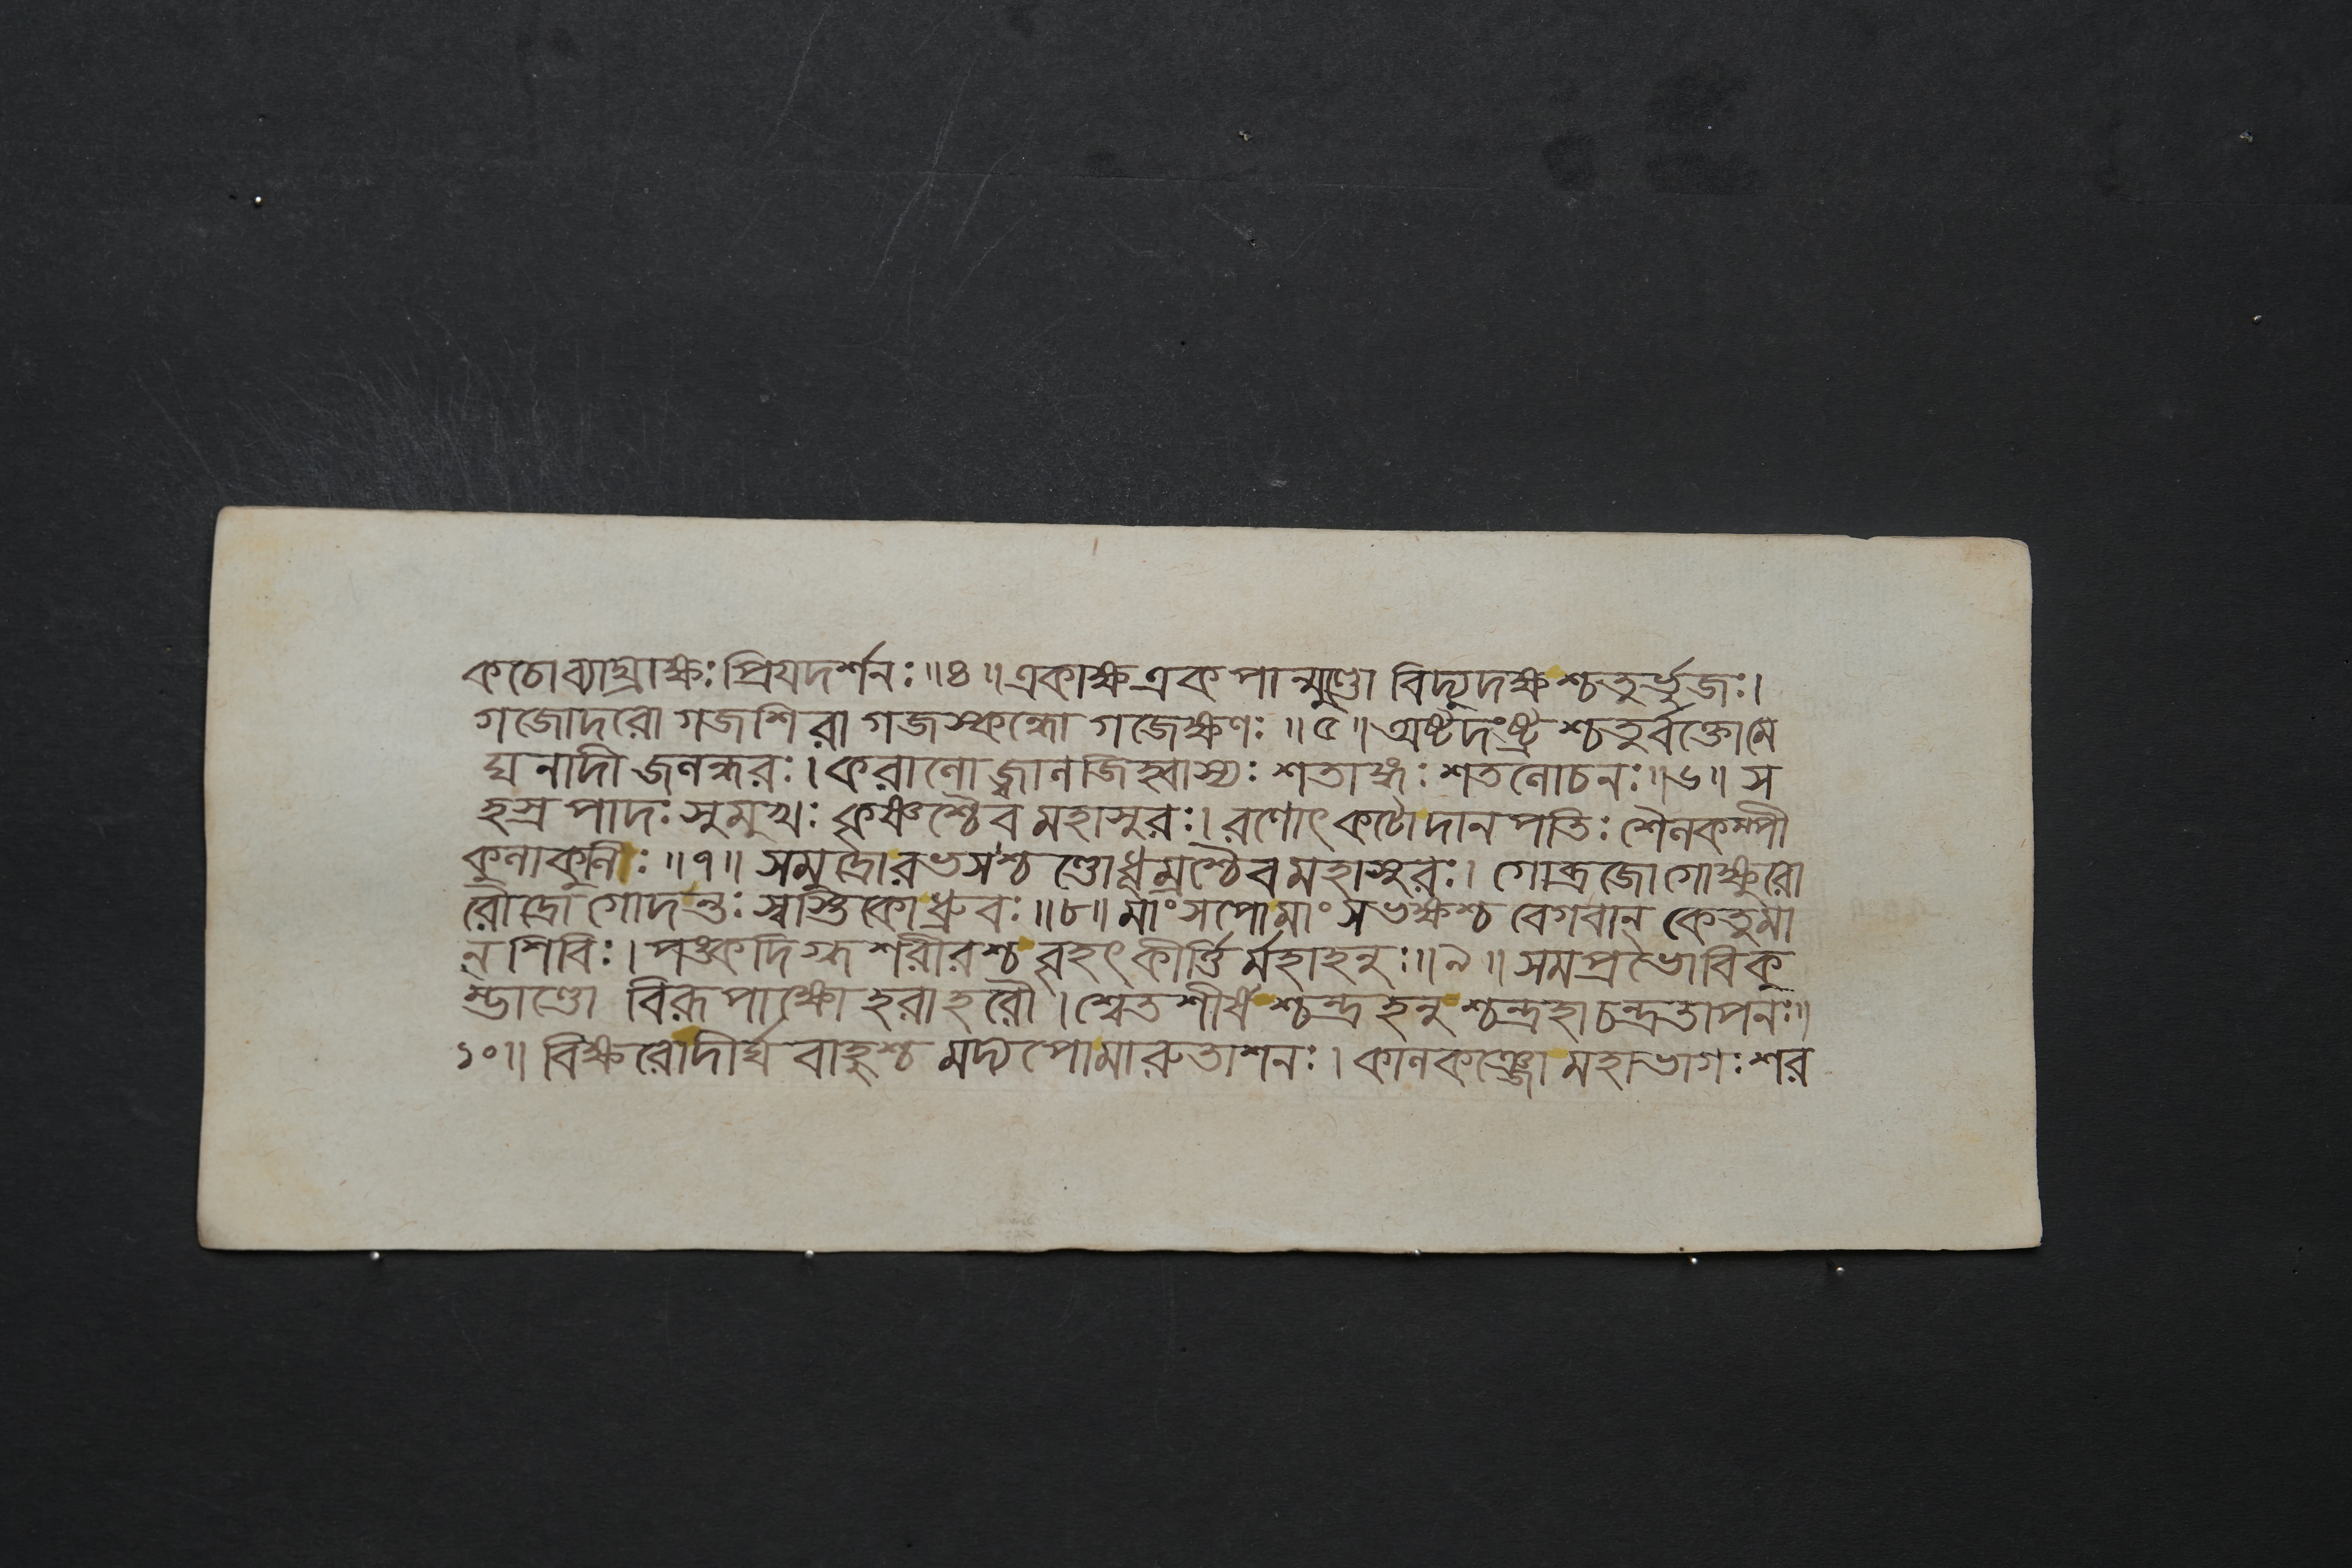 কচো ব্যাঘ্রাক্ষঃ প্রিয়দর্শনঃ ॥৪॥ একাক্ষ এক পান্মুণ্ডো বিদ্যুদক্ষ শ্চতুর্ভুজঃ ।
গজোদরো গজশিরা গজস্কন্ধো গজেক্ষণঃ ॥৫॥ অষ্টদংষ্ট্র শ্চতুর্বক্ত্রো মে
ঘ নাদী জলন্ধরঃ । করালো জ্বালজিহ্বাস্যঃ শতাক্ষঃ শতলোচনঃ ॥৬॥ স
হস্র পাদঃ সুমুখঃ কৃষ্ণশ্চৈব মহাসুরঃ । রণোৎকটো দানপতিঃ শৈলকম্পী
কুলাকুলিঃ ॥৭॥ সমুদ্রো রভসশ্চণ্ডো ধূম্রশ্চৈব মহাসুরঃ । গোব্রজো গোক্ষুরো
রৌদ্রো গোদন্তঃ স্বস্তিকো ধ্রুবঃ ॥৮॥ মাংসপো মাংসভক্ষশ্চ বেগবান্ কেতুমা
ন্ শিবিঃ । পঙ্কদিগ্ধ শরীরশ্চ বৃহৎকীর্ত্তি র্মহাহনুঃ ॥৯॥ সমপ্রভো বিকু
ম্ভাণ্ডো বিরূপাক্ষো হরাহরৌ । শ্বেতশীর্ষ শ্চন্দ্রহনু শ্চন্দ্রহা চন্দ্রতাপনঃ ॥
১০॥ বিক্ষরো দীর্ঘবাহুশ্চ মদ্যপো মারুতাশনঃ । কালকঞ্জো মহাভাগঃ শর